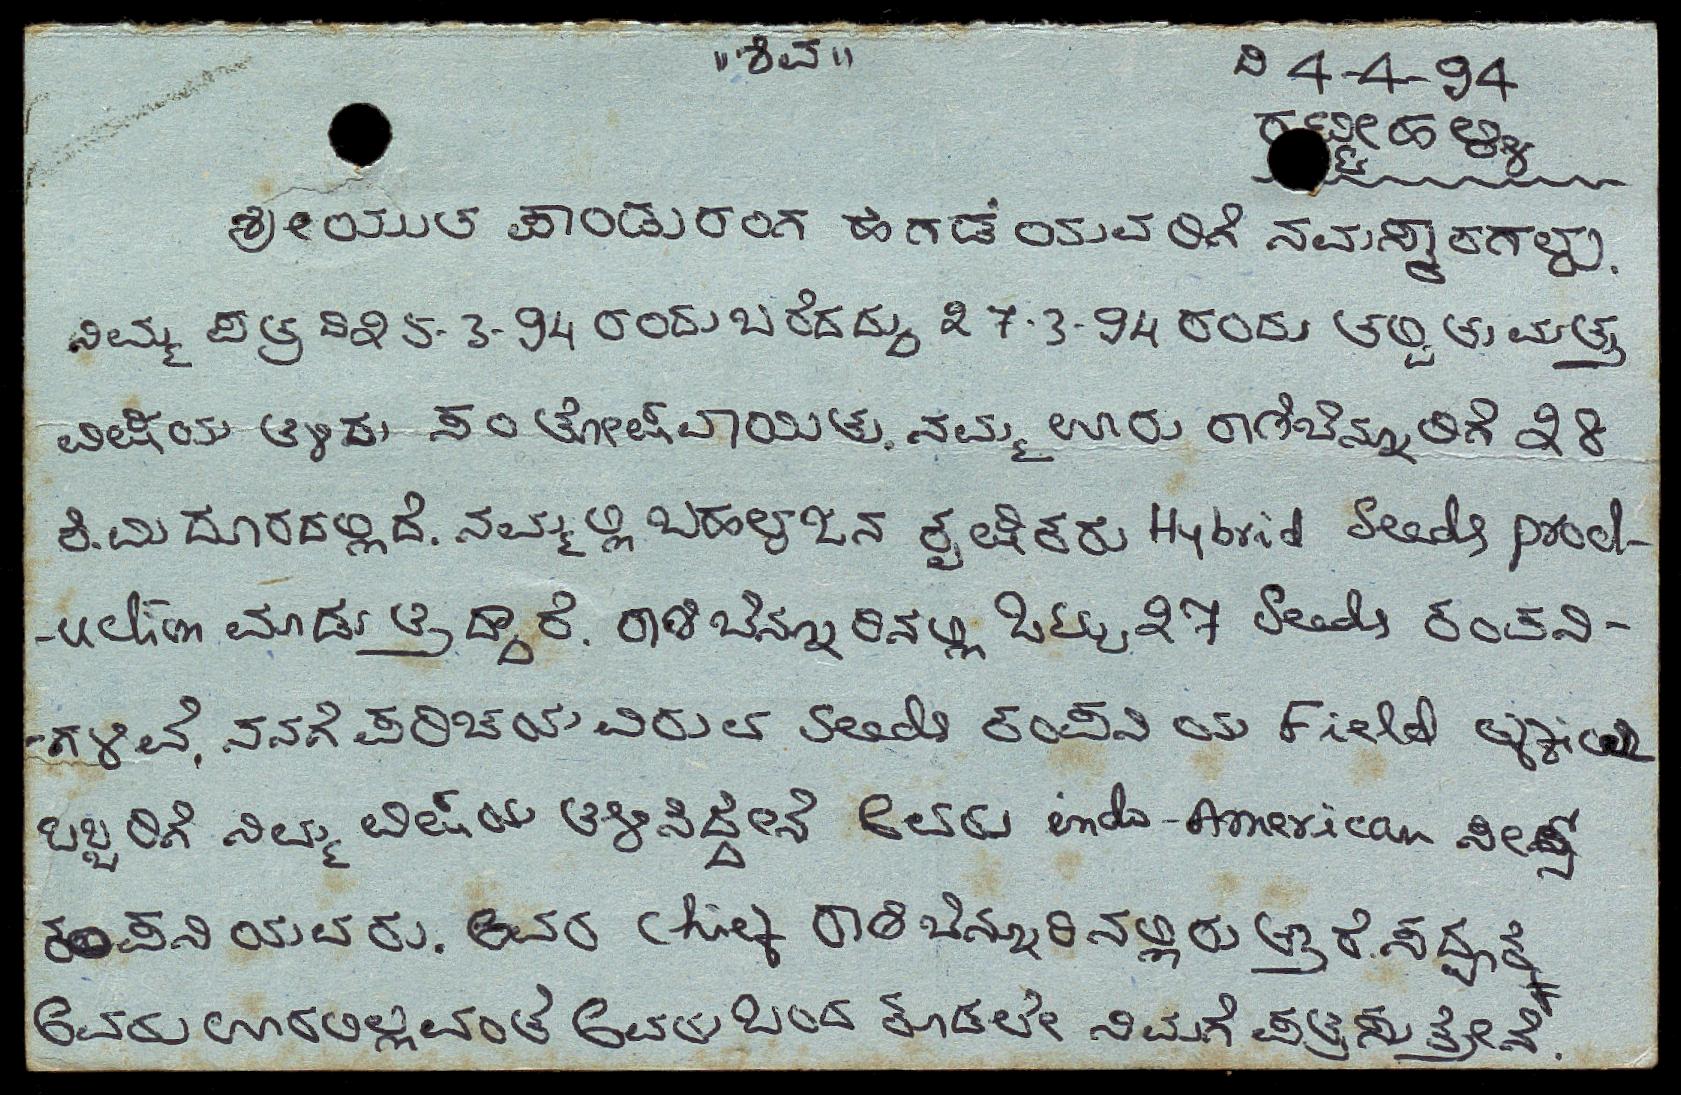 "ಶಿವ"
ದಿ 4-4-94
ರಟ್ಟೀಹಳ್ಳಿ
ಶ್ರೀಯುತ ಪಾಂಡುರಂಗ ಹೆಗಡೆಯವರಿಗೆ ನಮಸ್ಕಾರಗಳು.
ನಿಮ್ಮ ಪತ್ರ ದಿ 25-3-94 ರಂದು ಬರೆದದ್ದು 27-3-94 ರಂದು ತಲ್ಪಿತು ಮತ್ತು
ವಿಷಯ ತಿಳಿದು ಸಂತೋಷವಾಯಿತು. ನಮ್ಮ ಊರು ರಾಣಿಬೆನ್ನೂರಿಗೆ 28
ಕಿ.ಮಿ ದೂರದಲ್ಲಿದೆ. ನಮ್ಮಲ್ಲಿ ಬಹಳ ಜನ ಕೃಷಿಕರು Hybrid Seeds prod-
-uction ಮಾಡುತ್ತಿದ್ದಾರೆ. ರಾಣಿಬೆನ್ನೂರಿನಲ್ಲಿ ಒಟ್ಟು 27 Seeds ಕಂಪನಿ-
-ಗಳಿವೆ. ನನಗೆ ಪರಿಚಯವಿರುವ Seeds ಕಂಪನಿಯ Field
ಒಬ್ಬರಿಗೆ ನಿಮ್ಮ ವಿಷಯ ತಿಳಿಸಿದ್ದೇನೆ ಅವರು indo-American ಸೀಡ್ಸ್
ಕಂಪನಿಯವರು. ಅವರ Chief ರಾಣಿಬೆನ್ನೂರಿನಲ್ಲಿರುತ್ತಾರೆ. ಸದ್ಯಕ್ಕೆ
ಅವರು ಊರಲಿಲ್ಲವಂತೆ ಅವರು ಬಂದ ಕೂಡಲೇ ನಿಮಗೆ